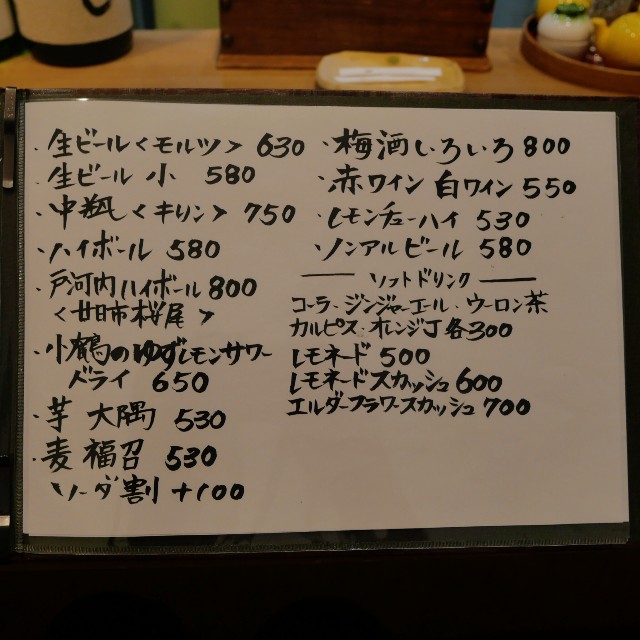 ・生ビール<モルツ> 630
生ビール 小 580
・中瓶<キリン> 750
・ハイボール 580
・戸河内ハイボール 800
<廿日市桜尾>
・小鶴のゆずレモンサワー
ドライ 650
・芋 大隅 530
・麦 福召 530
ソーダ割 +100
・梅酒いろいろ 800
・赤ワイン 白ワイン 550
・レモンチューハイ 530
・ノンアルビール 580
ソフトドリンク
コーラ・ジンジャーエール・ウーロン茶
カルピス・オレンジJ 各300
レモネード 500
レモネードスカッシュ 600
エルダーフラワースカッシュ 700